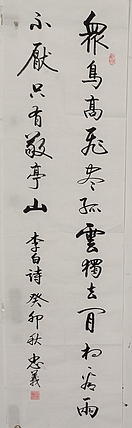 衆鳥高飛盡孤雲獨去閒相看兩
不厭只有敬亭山 李白诗 癸卯秋 忠義